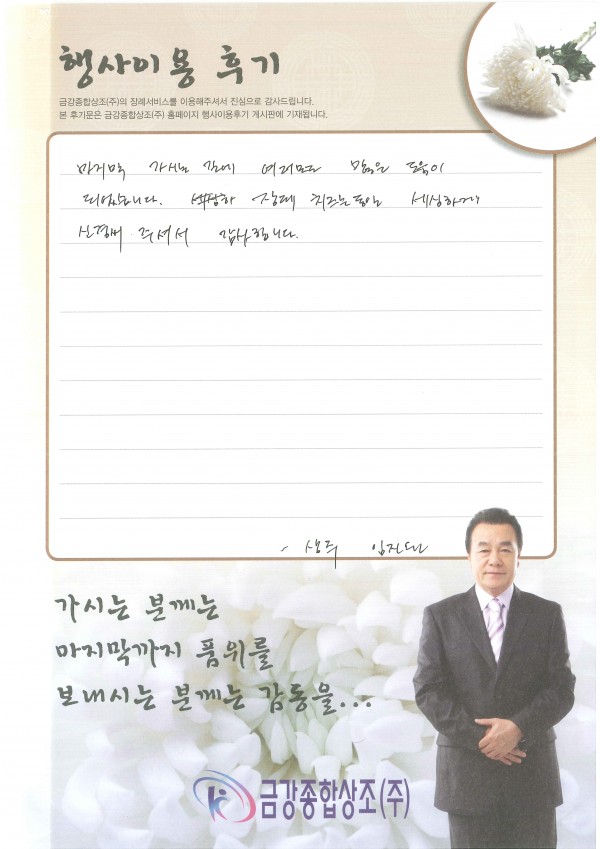 행사이용 후기
금강종합상조(주)의 장례서비스를 이용해주셔서 진심으로 감사드립니다.
본 후기문은 금강종합상조(주) 홈페이지 행사이용후기 게시판에 기재됩니다.
마지막 가시는 길에 여러모로 많은 도움이
되었습니다. 장례 치르는동안 세심하게
신경써 주셔서 감사합니다.
- 상주
가시는 분께는
마지막까지 품위를
보내시는 분께는 감동을...
금강종합상조(주)